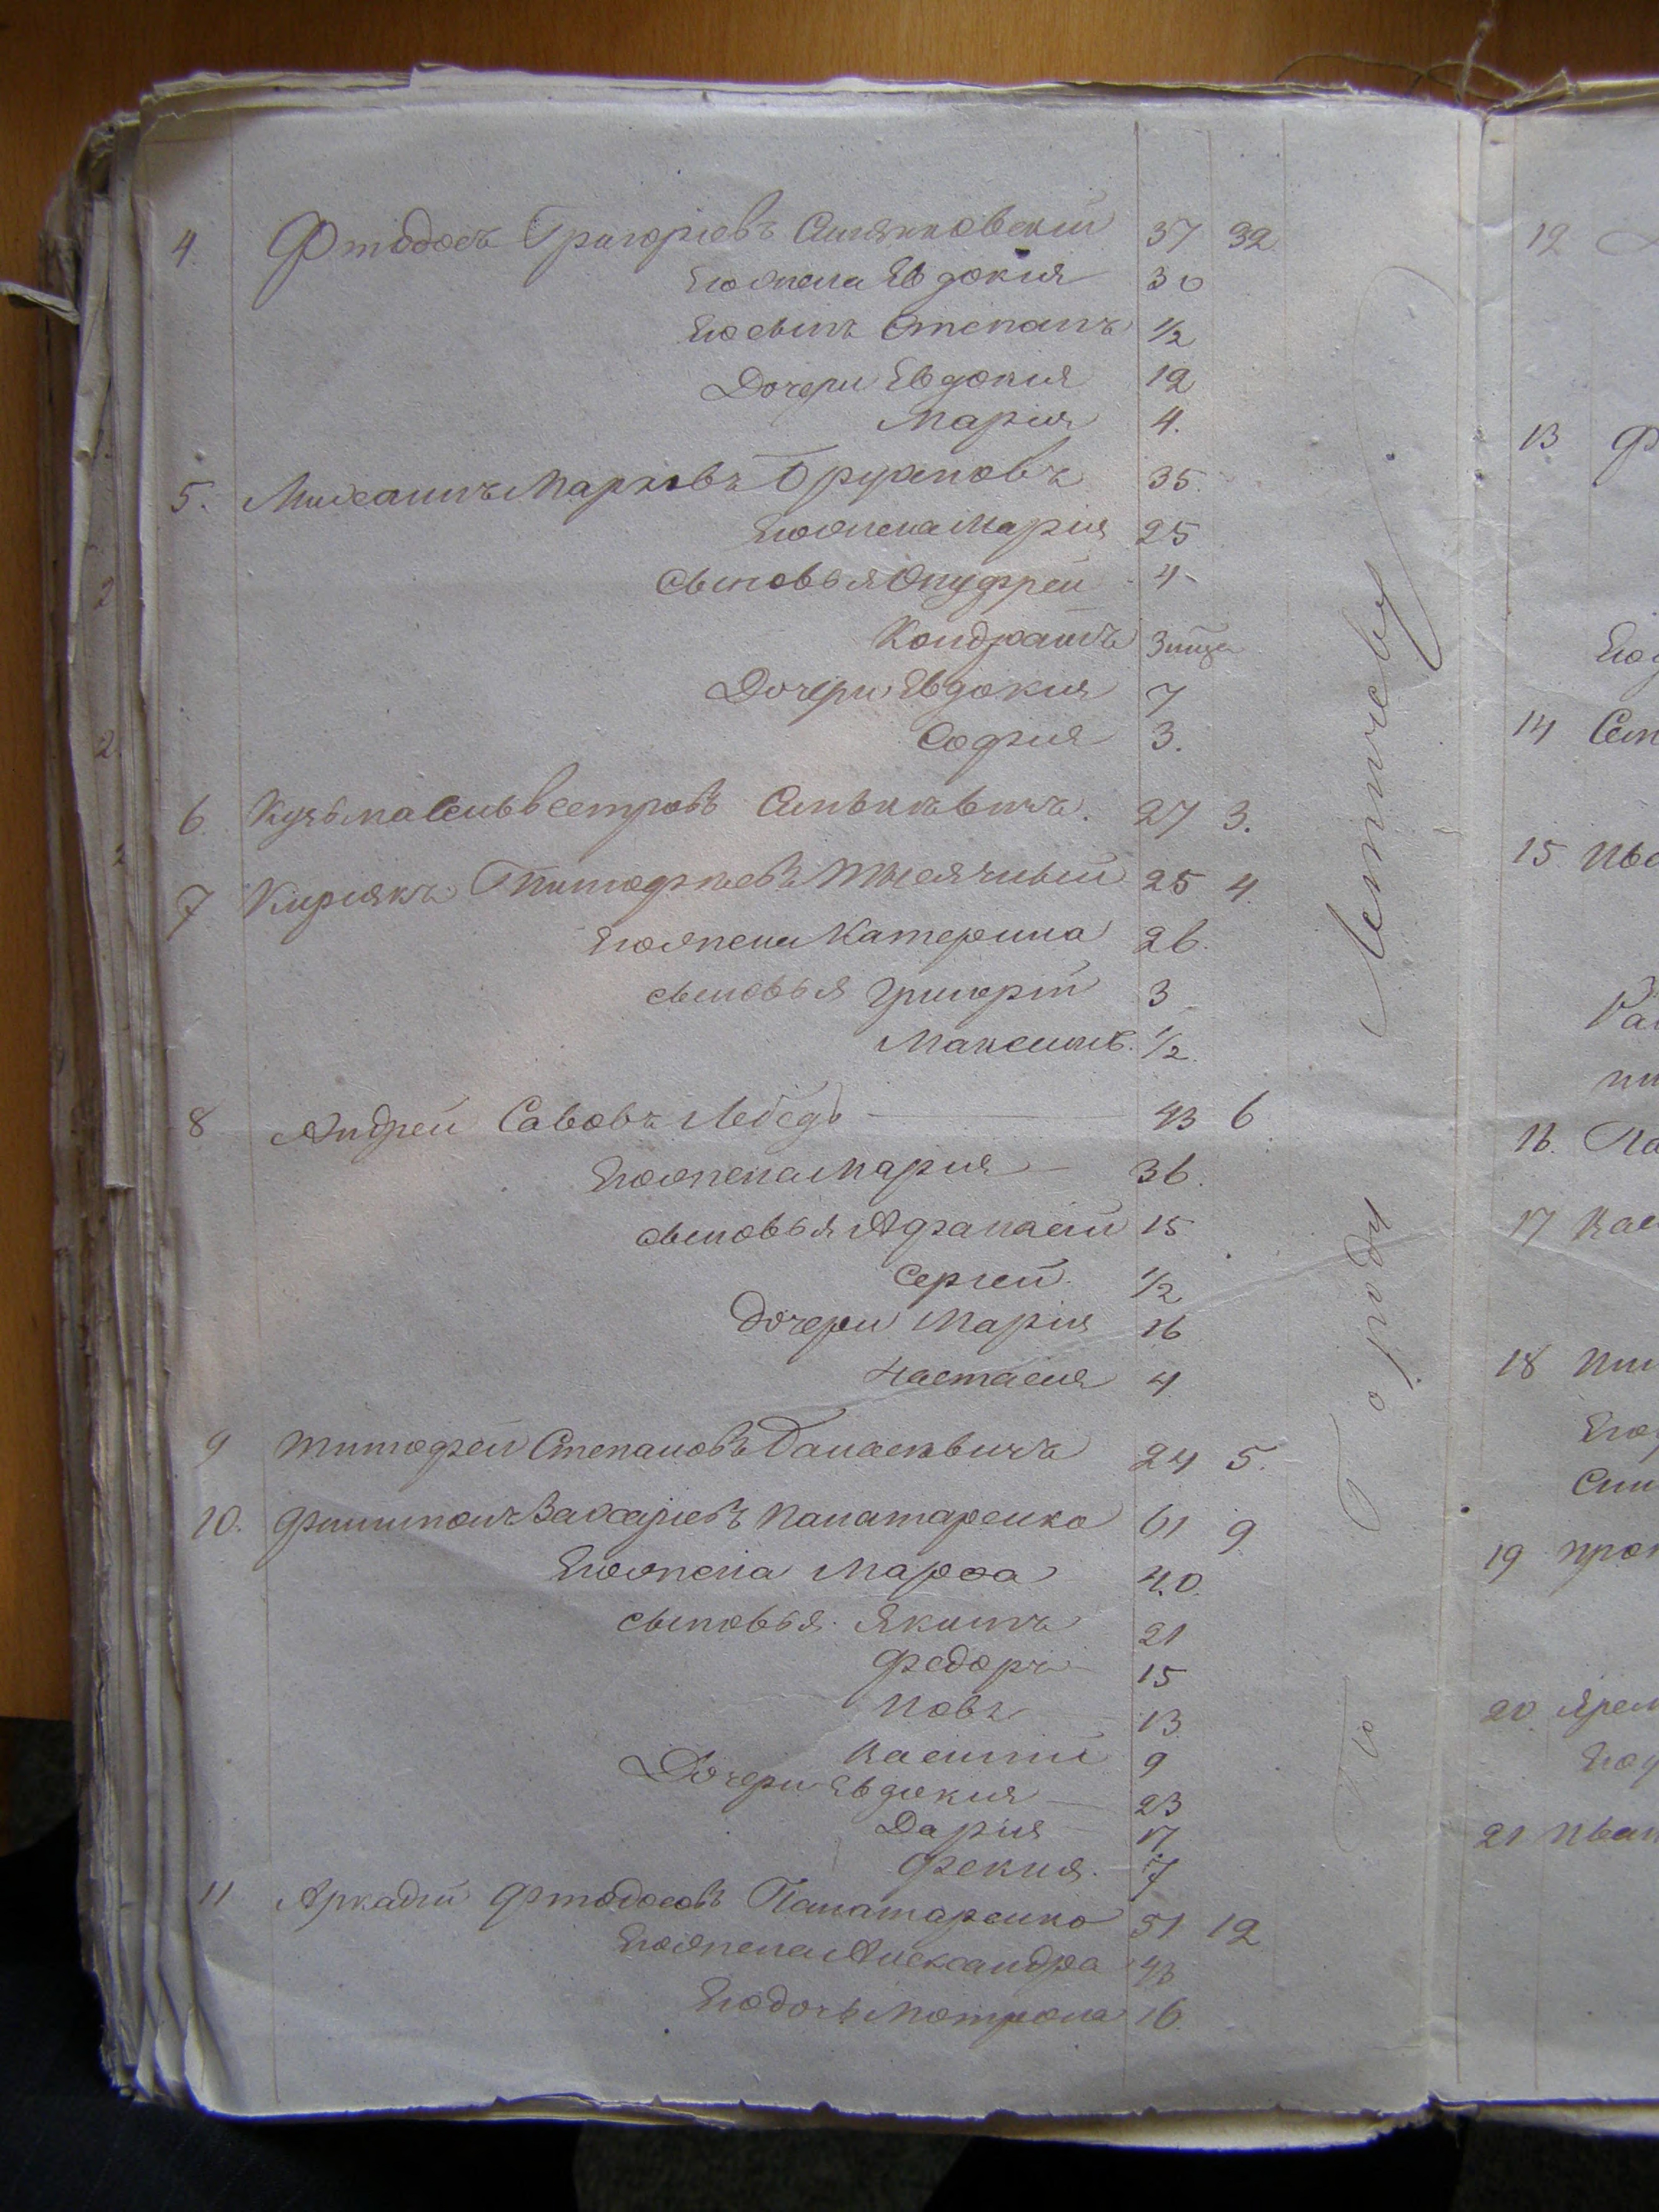 4. Фтодосъ Григорiевъ 37 32
Его жена Евдокия 30
Его сынъ Степанъ 1/2
Дочери Евдокия 12
Мария 4.
5. Михаилъ Марковъ 35.
Его жена Мария 25
Сыновья Онуфрей 4
Кондратъ
Дочери Евдокия 7
София 3.
6. Кузьма Сильвестровъ 27 3.
7 Кириякъ Тимофѣевъ Тысячный 25 4.
Его жена Катерина 26.
сыновья Григорiй 3
Максимъ. 1/2.
8 Андрей Савовъ Лебедь 43 6
Его жена Мария 36.
сыновья Афанасiй 15
Сергей 1/2
Дочери Мария 16
Настасия 4
9 Тимофей Степановъ 24 5.
10. Филимонъ Захарiевъ Панатаренко 61 9
Его жена Марфа 40.
сыновья Якимъ 21
Федоръ 15
Иовъ 13
Василий 9
Дочери Евдокия 23
Дария 17
Фекия. 7
11 Аркадiй Фтодосовъ Панатаренко 51 12
Его жена Александра 43
Его дочь Мотрона 16.
По Городу Летичеву
12
13 Ф
14
15
16.
17
18
19
20
21 Иван